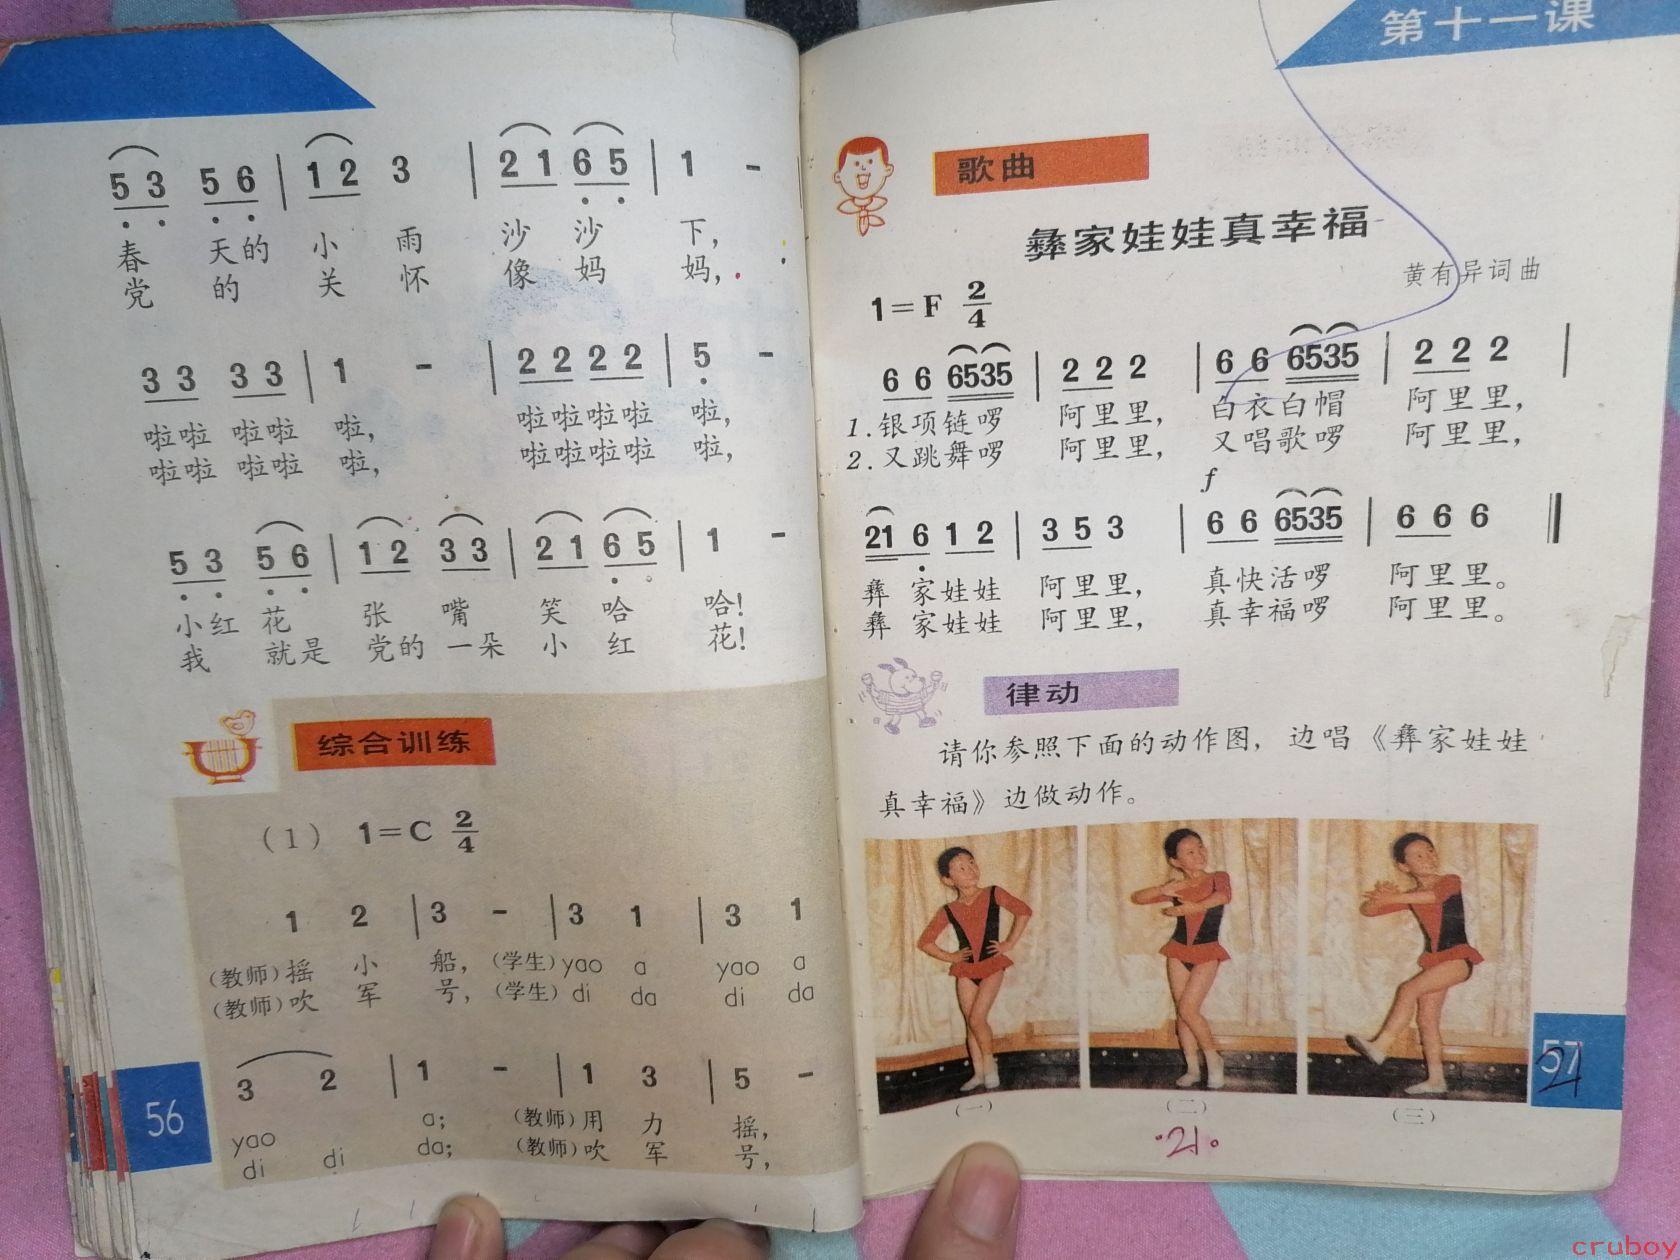 5 3 5 6 | 1 2 3 | 2 1 6 5 | 1 - |
春 天的 小 雨 沙 沙 下,
党 的 关 怀 像 妈 妈,
3 3 3 3 | 1 - | 2 2 2 2 | 5 -
啦啦 啦啦 啦, 啦啦啦啦 啦,
啦啦 啦啦 啦, 啦啦啦啦 啦,
5 3 5 6 | 1 2 3 3 | 2 1 6 5 | 1 -
小红 花 张 嘴 笑 哈 哈!
我 就是 党的 一朵 小 红 花!
综合训练
(1) 1=C 2/4
1 2 | 3 - | 3 1 | 3 1
(教师)摇 小 船, (学生)yao a yao a
(教师)吹 军 号, (学生)di da di da
3 2 | 1 - | 1 3 | 5 -
yao a; (教师)用 力 摇,
di di da; (教师)吹 军 号,
56
第十一课
歌曲
彝家娃娃真幸福
黄有异词曲
1=F 2/4
6 6 6535 | 2 2 2 | 6 6 6535 | 2 2 2 |
1.银项链啰 阿里里, 白衣白帽 阿里里,
2.又跳舞啰 阿里里, 又唱歌啰 阿里里,
f
21 6 1 2 | 3 5 3 | 6 6 6535 | 6 6 6 ‖
彝 家娃娃 阿里里, 真快活啰 阿里里。
彝 家娃娃 阿里里, 真幸福啰 阿里里。
律动
请你参照下面的动作图，边唱《彝家娃娃
真幸福》边做动作。
(一) (二) (三)
57
21
21
cruboy